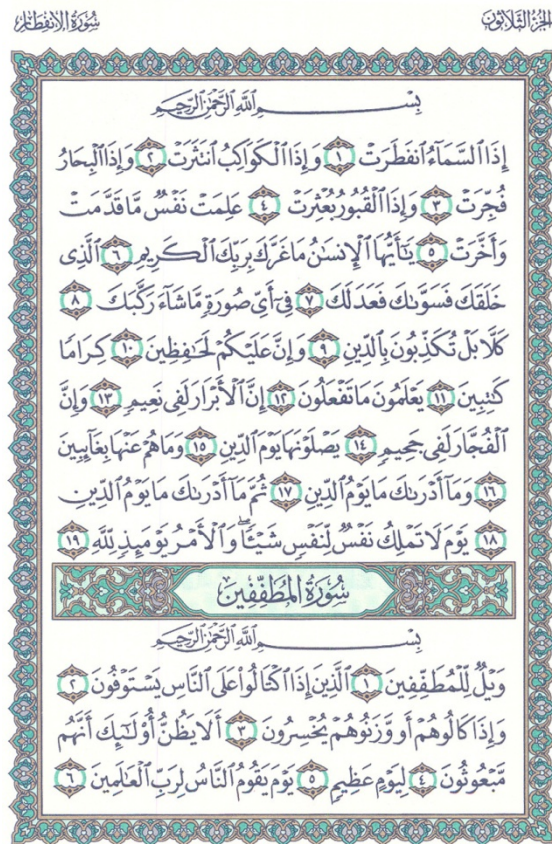 سُورَةُ الِانفِطَارِ
الجُزْءُ الثَّلَاثُونَ
بِسْمِ اللَّهِ الرَّحْمَٰنِ الرَّحِيمِ
إِذَا السَّمَاءُ انفَطَرَتْ ١ وَإِذَا الْكَوَاكِبُ انتَثَرَتْ ٢ وَإِذَا الْبِحَارُ
فُجِّرَتْ ٣ وَإِذَا الْقُبُورُ بُعْثِرَتْ ٤ عَلِمَتْ نَفْسٌ مَّا قَدَّمَتْ
وَأَخَّرَتْ ٥ يَٰٓأَيُّهَا الْإِنسَٰنُ مَا غَرَّكَ بِرَبِّكَ الْكَرِيمِ ٦ الَّذِى
خَلَقَكَ فَسَوَّىٰكَ فَعَدَلَكَ ٧ فِىٓ أَىِّ صُورَةٍ مَّا شَآءَ رَكَّبَكَ ٨
كَلَّا بَلْ تُكَذِّبُونَ بِالدِّينِ ٩ وَإِنَّ عَلَيْكُمْ لَحَٰفِظِينَ ١٠ كِرَامًا
كَٰتِبِينَ ١١ يَعْلَمُونَ مَا تَفْعَلُونَ ١٢ إِنَّ الْأَبْرَارَ لَفِى نَعِيمٍ ١٣ وَإِنَّ
الْفُجَّارَ لَفِى جَحِيمٍ ١٤ يَصْلَوْنَهَا يَوْمَ الدِّينِ ١٥ وَمَا هُمْ عَنْهَا بِغَآئِبِينَ
١٦ وَمَآ أَدْرَىٰكَ مَا يَوْمُ الدِّينِ ١٧ ثُمَّ مَآ أَدْرَىٰكَ مَا يَوْمُ الدِّينِ
١٨ يَوْمَ لَا تَمْلِكُ نَفْسٌ لِّنَفْسٍ شَيْـًٔا ۖ وَالْأَمْرُ يَوْمَئِذٍ لِّلَّهِ ١٩
سُورَةُ الْمُطَفِّفِينَ
بِسْمِ اللَّهِ الرَّحْمَٰنِ الرَّحِيمِ
وَيْلٌ لِّلْمُطَفِّفِينَ ١ الَّذِينَ إِذَا اكْتَالُوا عَلَى النَّاسِ يَسْتَوْفُونَ ٢
وَإِذَا كَالُوهُمْ أَو وَّزَنُوهُمْ يُخْسِرُونَ ٣ أَلَا يَظُنُّ أُو۟لَٰٓئِكَ أَنَّهُم
مَّبْعُوثُونَ ٤ لِيَوْمٍ عَظِيمٍ ٥ يَوْمَ يَقُومُ النَّاسُ لِرَبِّ الْعَٰلَمِينَ ٦